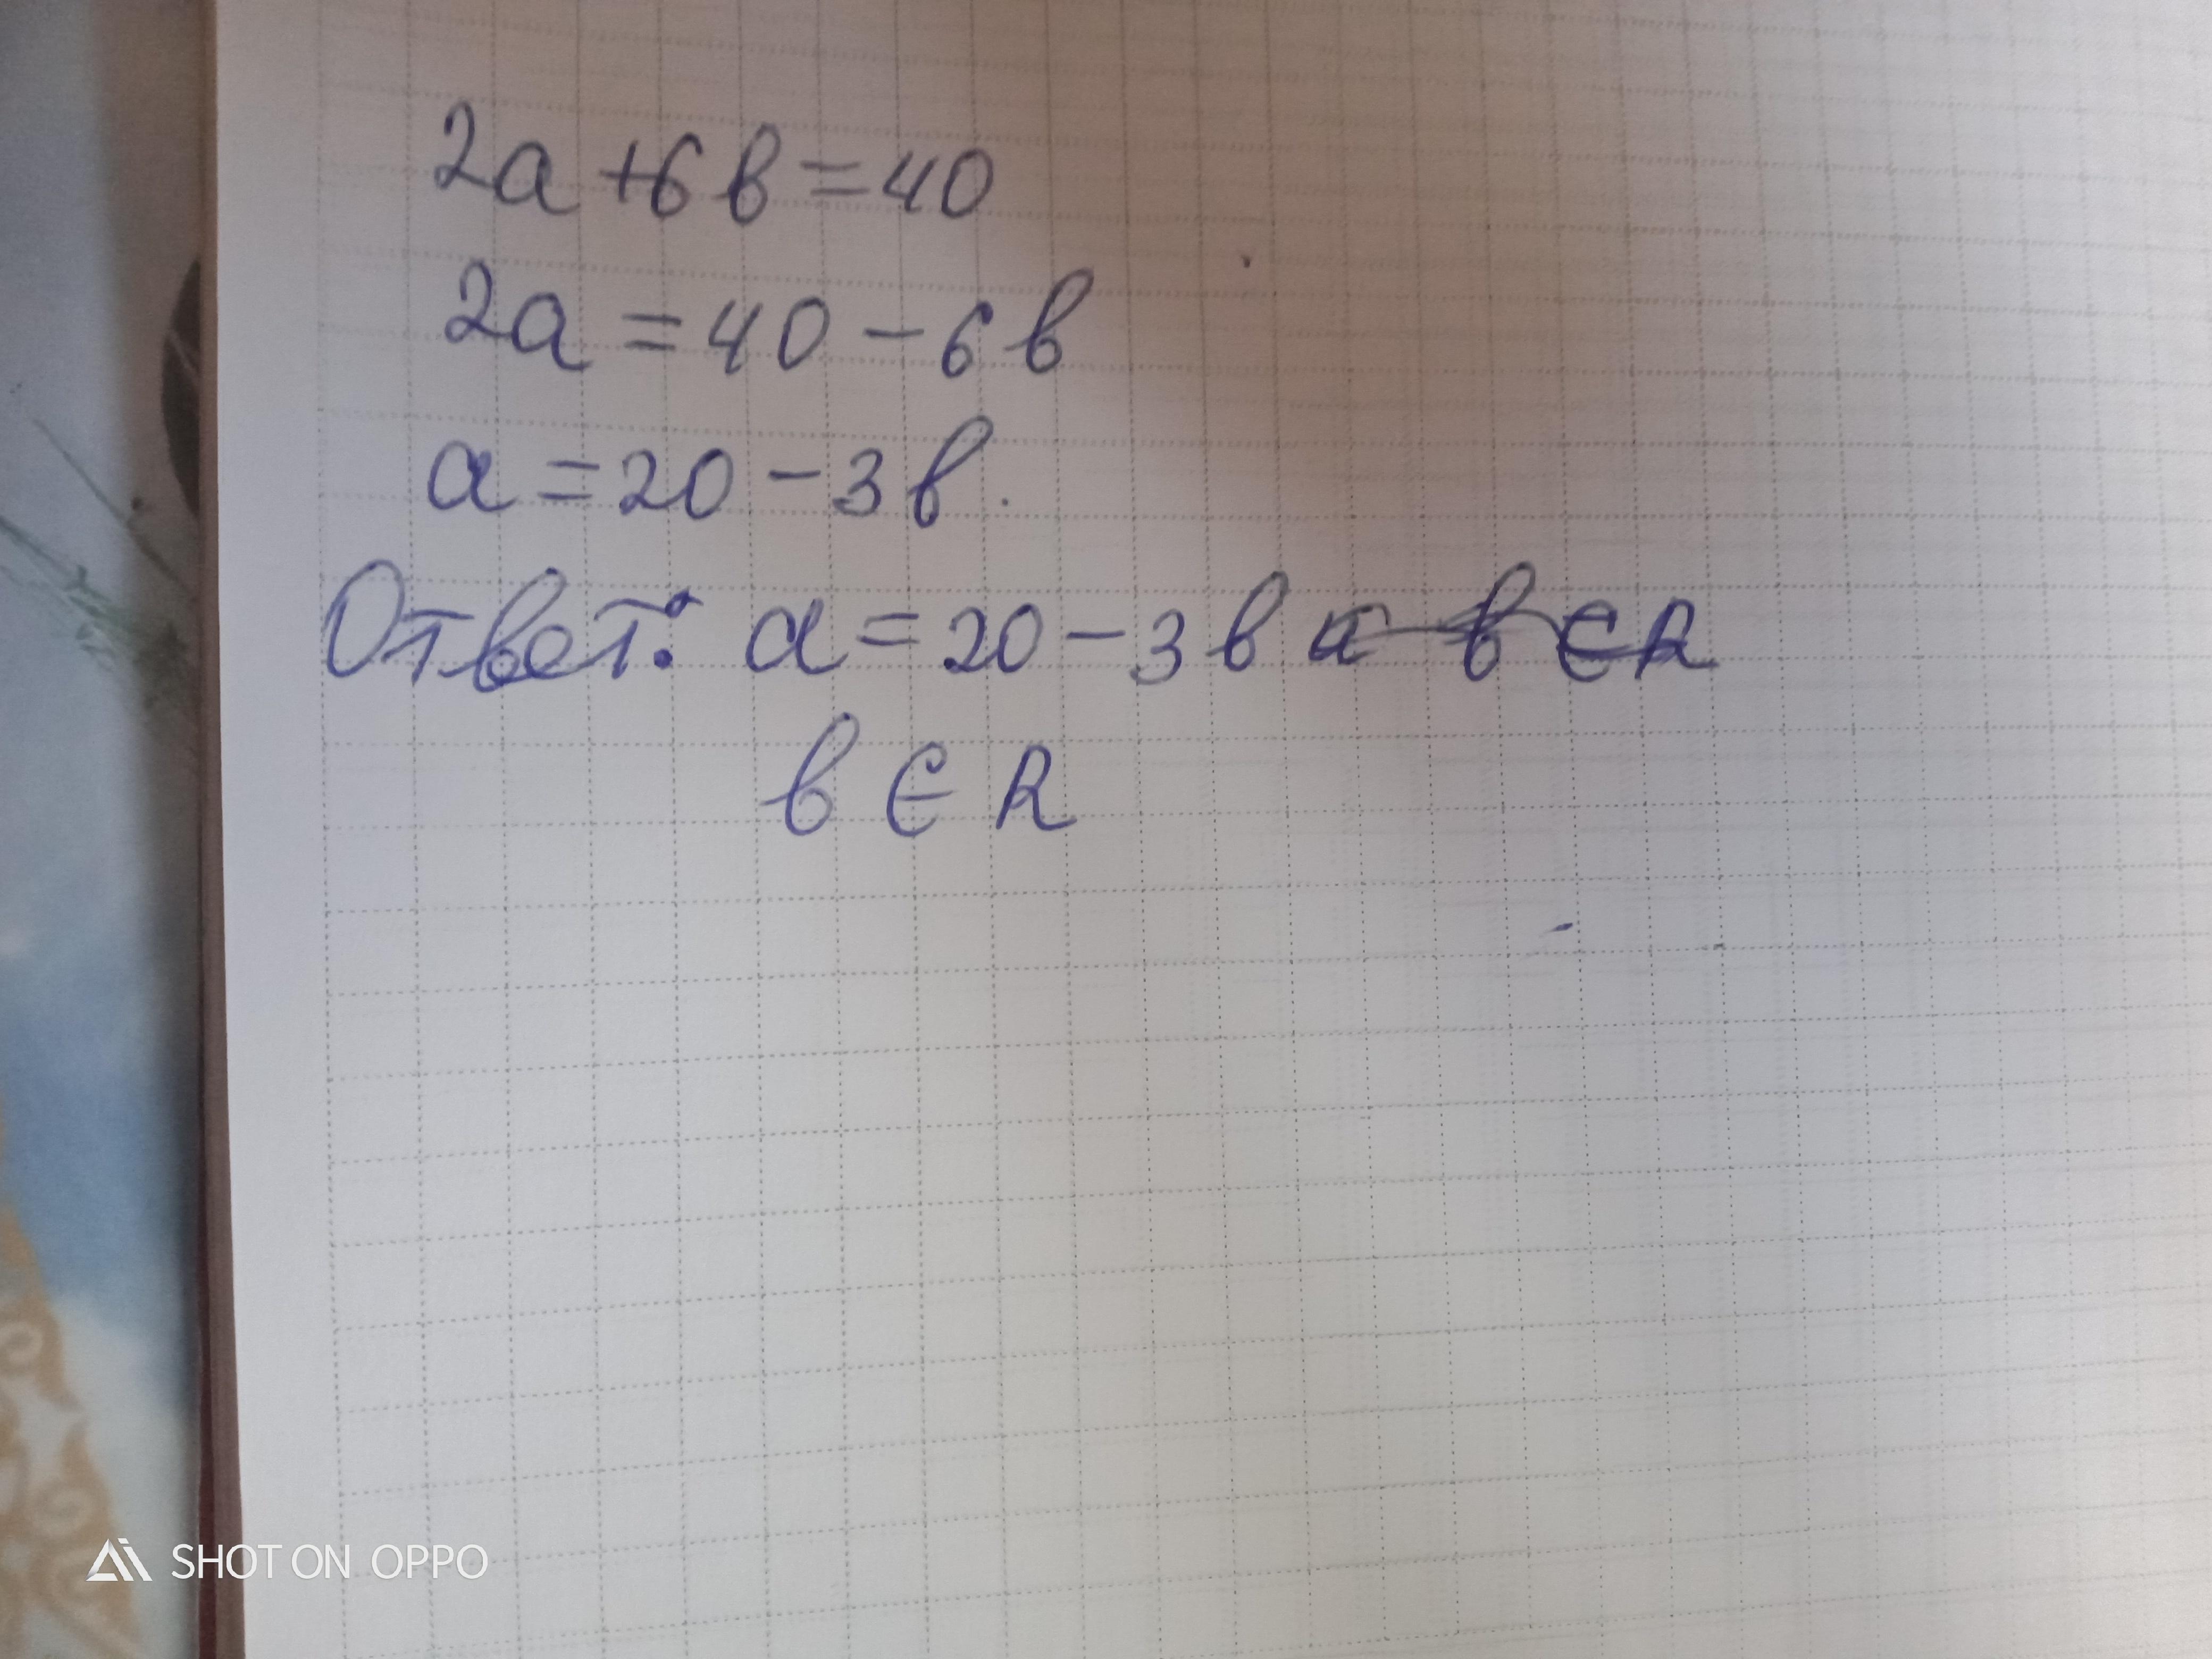 2а+6в=40
2а=40-6в
а=20-3в.
Ответ: а=20-3в а в ∈ R
в ∈ R
SHOT ON OPPO